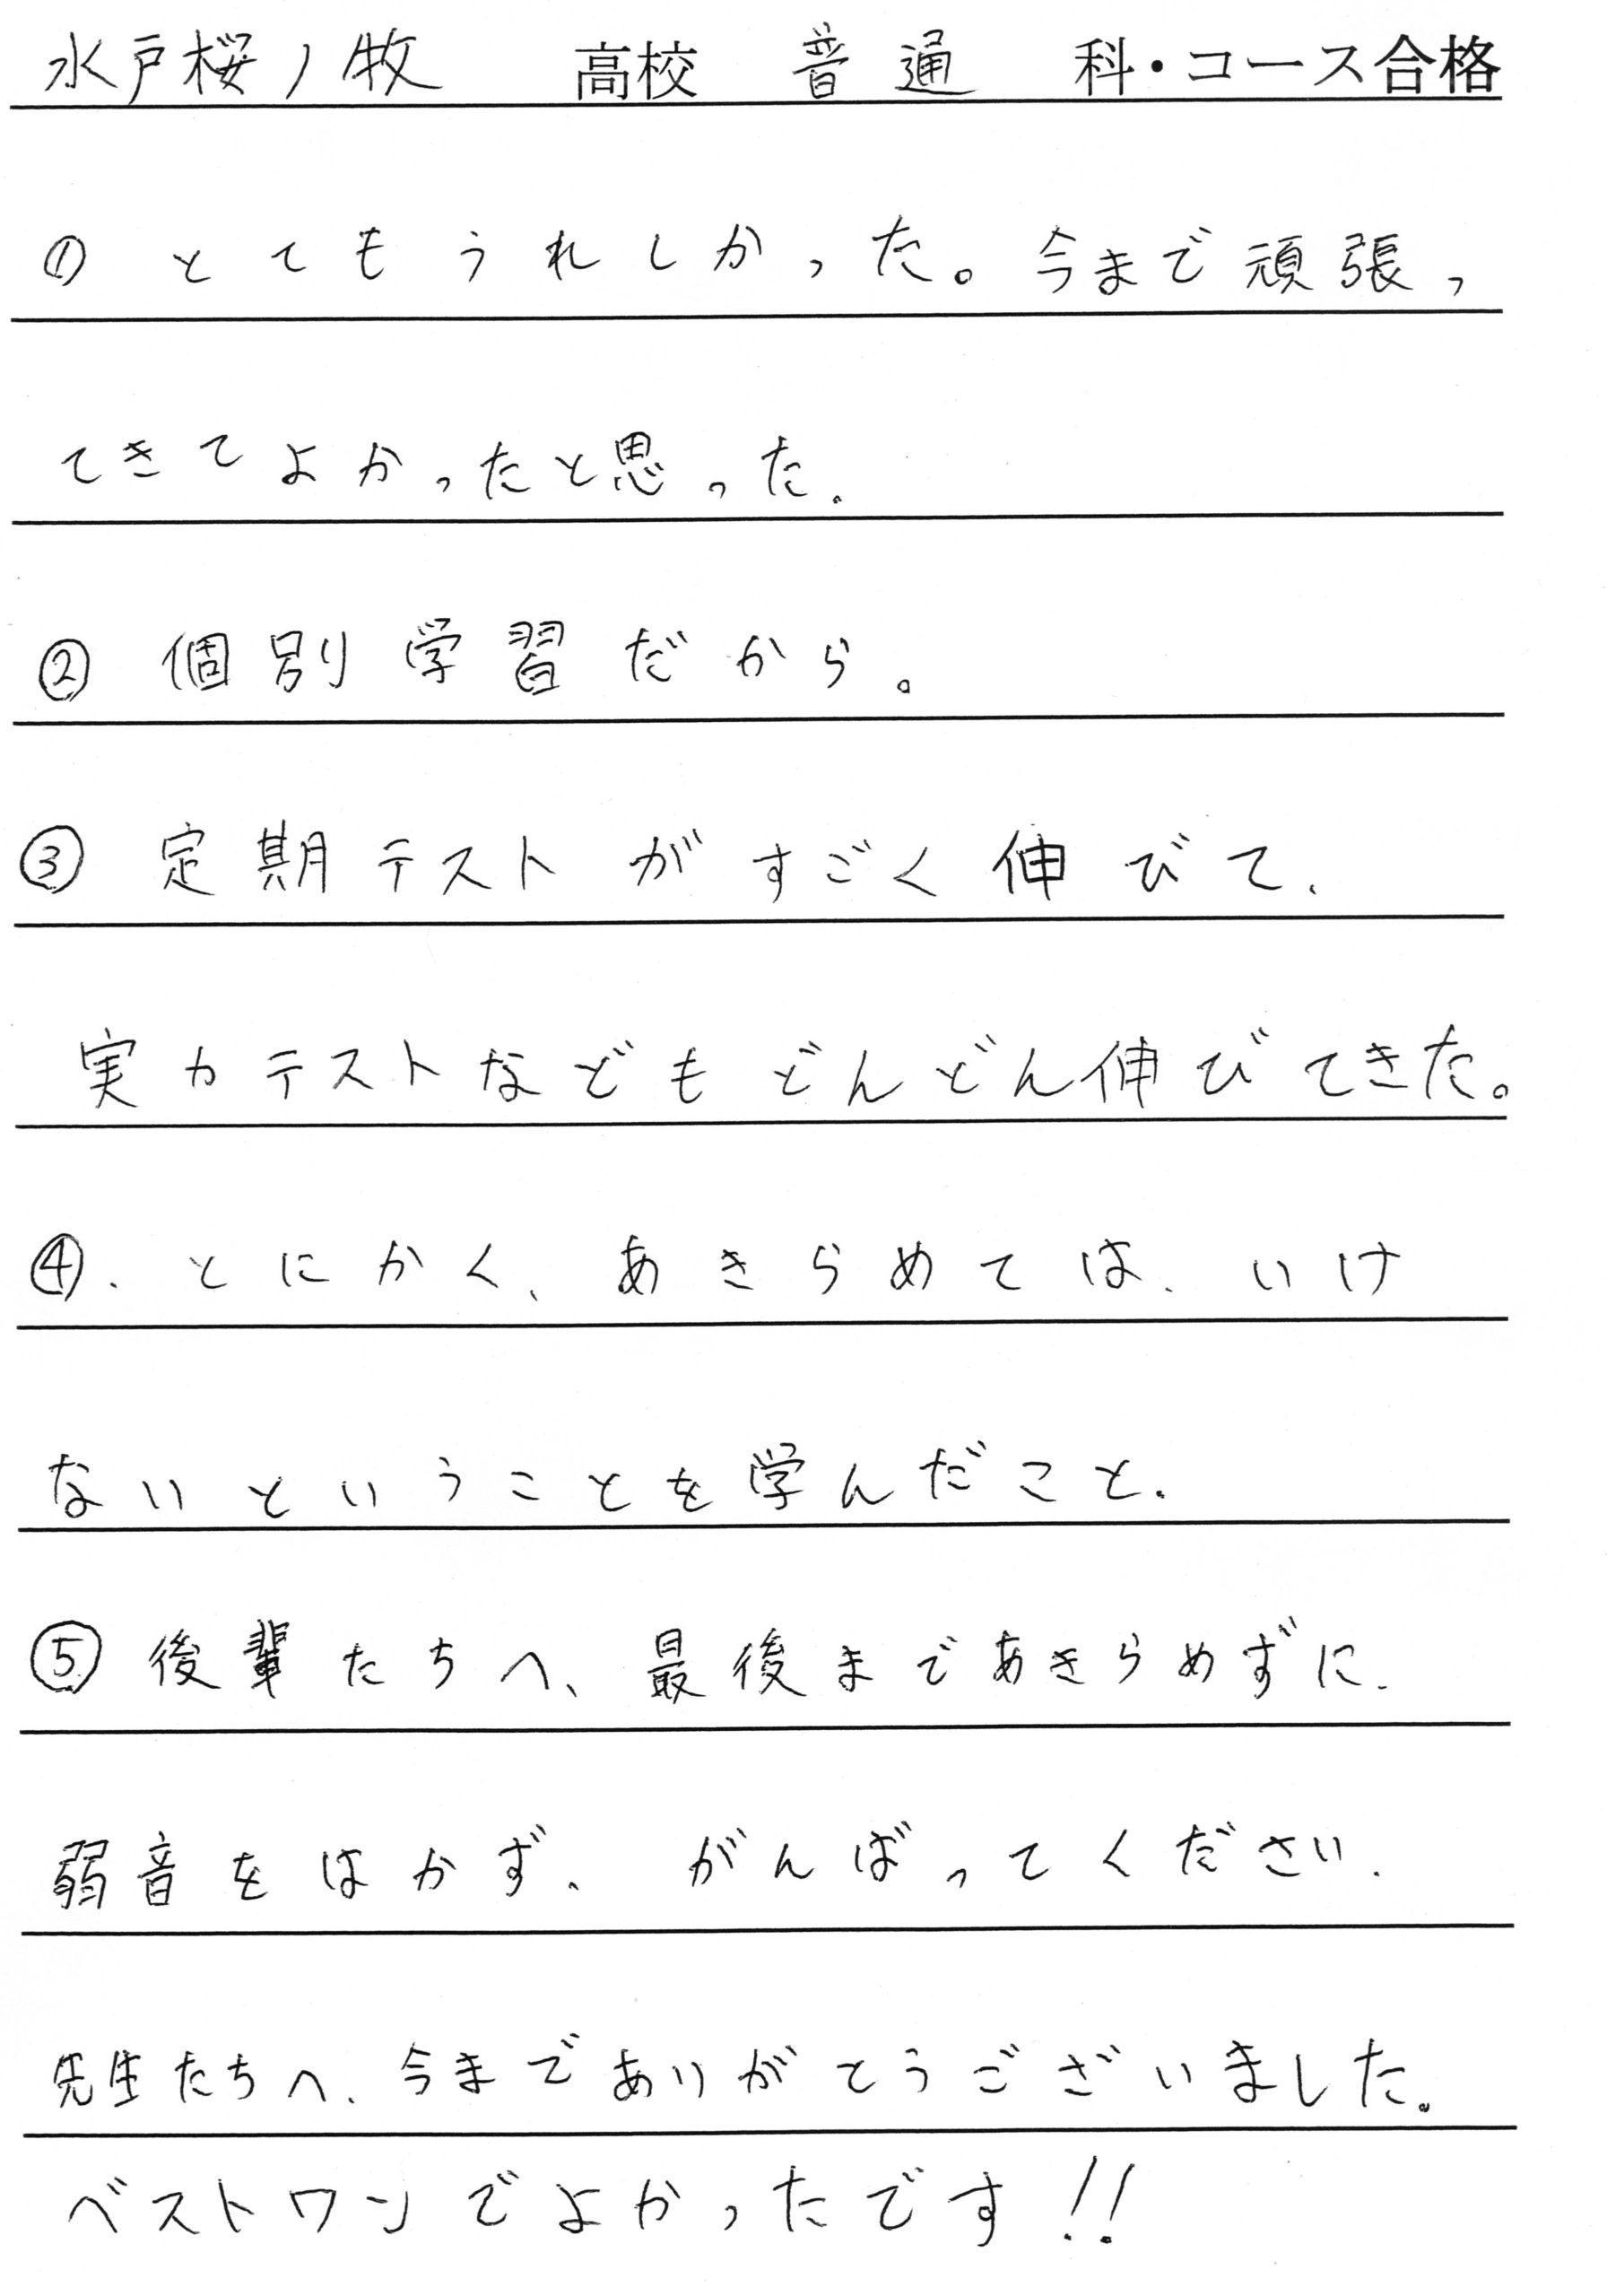 水戸桜ノ牧 高校 普通 科・コース合格
① とてもうれしかった。今まで頑張っ
てきてよかったと思った。
② 個別学習だから。
③ 定期テストがすごく伸びて、
実力テストなどもどんどん伸びてきた。
④. とにかく、あきらめては、いけ
ないということを学んだこと。
⑤ 後輩たちへ、最後まであきらめずに、
弱音をはかず、がんばってください。
先生たちへ、今までありがとうございました。
ベストワンでよかったです!!